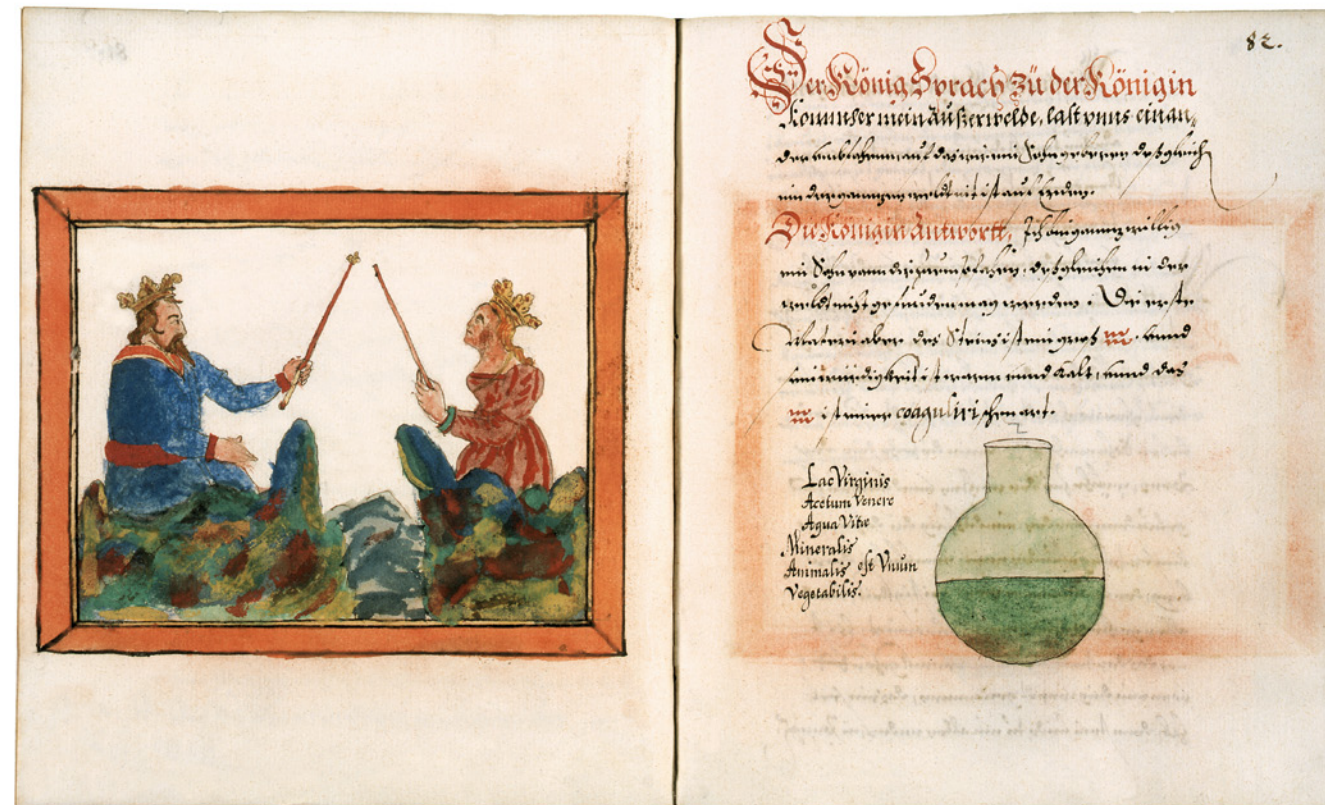 82.
Der König Sprach Zü der Königin
Kommer mein Außerwelde, last vnns einan,
der vmbfahenn, auf das wir ein Sohn geberen deßgleich
inn der ganntzen weldt nit ist auf Erden.
Die Königin Antwortt, Ich bin ganntz willig
ein Sohn vonn dir zu empfahen, deßgleichen in der
weldt nicht gefunden mag werden. Die erste
Materi aber des Steins ist ein gros vnnd
sein würdigkeit ist warm vnnd Kalt, vnnd das
ist einer coagulirischen art.
Lac Virginis
Acetum Venere
Aqua Vitæ
Mineralis
Animalis est Vnum
Vegetabilis.